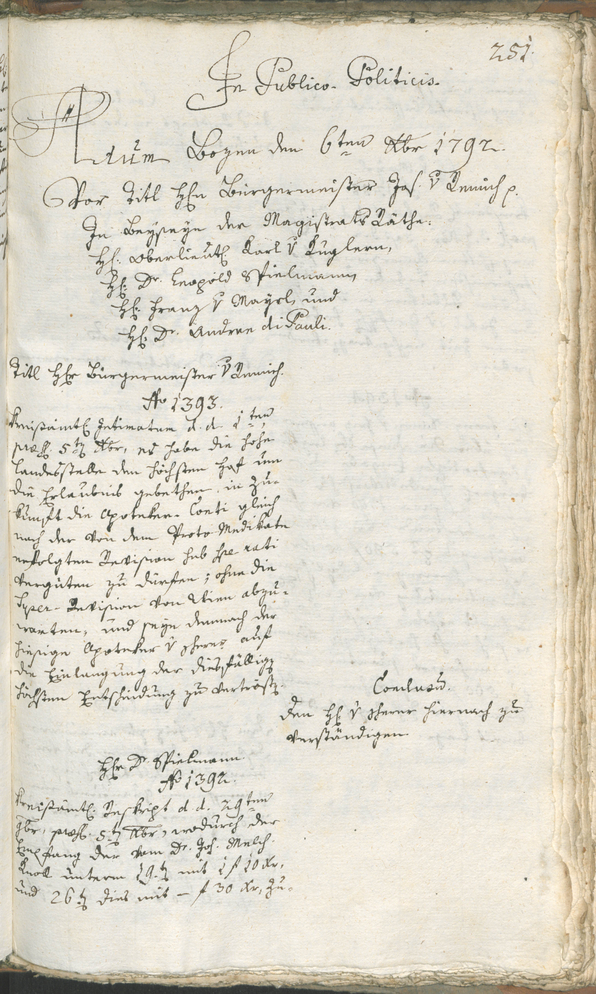 251.
In Publico-Politicis.
Actum Bozen den 6ten Xbr 1792.
Vor Titl Hrn Bürgermeister Jos. v Remich p.
In Beyseyn der Magistrats Räthe.
Hr. Oberlieut. Karl v Kuglern,
Hr. Dr. Leopold Spielmann,
Hr. Franz v Mayrl, und
Hr. Dr. Andree di Pauli.
Titl Hr Bürgermeister v Remich.
No 1393.
Kreisämtl. Intimation d. d. 1ten
præs. 5ten Xbr, es habe die hohe
Landesstelle den höchsten Hof um
die Erlaubnis gebethen, in Zu-
kunft die Apoteker-Conti gleich
nach der von dem Proto-Medikate
erfolgten Revision sub spe rati
vergüten zu dürfen; ohne die
Super-Revision von Wien abzu-
warten, und seye demnach der
hiesige Apoteker v Scherer auf
die Einlangung der diesfällig
höchsten Entscheidung zu vertrösten.
Conclusum.
Den Hr v Scherer hiernach zu
verständigen
Hr D. Spielmann
No 1392.
Kreisämtl. Reskript d d. 29ten
9br, præs. 5ten Xbr, wodurch der
Empfang der vom Dr. Joh. Melch.
Knoll unterm 19. mit 1 f 10 Xr,
und 26ten dies mit — f 30 Xr, zu-